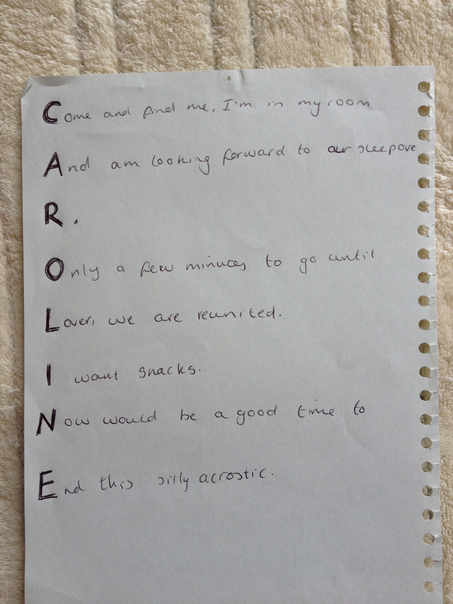 Come and find me, I'm in my room
And am looking forward to our sleepove
R.
Only a few minutes to go until
Lover, we are reunited.
I want snacks.
Now would be a good time to
End this silly acrostic.